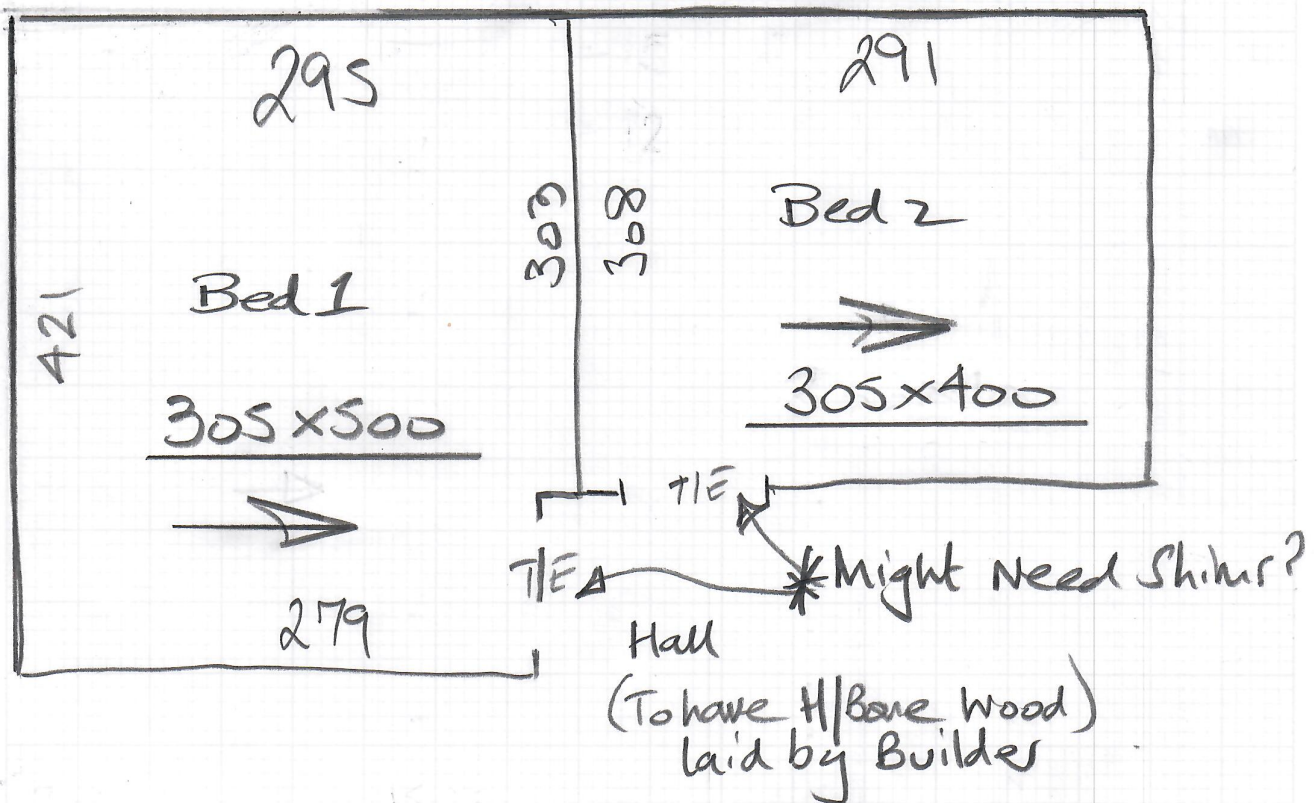 295
291
303
308
Bed 2
Bed 1
421
305x400
305x500
T/E
T/E
Might Need Shims?
279
Hall
(To have H/Bone Wood)
laid by Builder